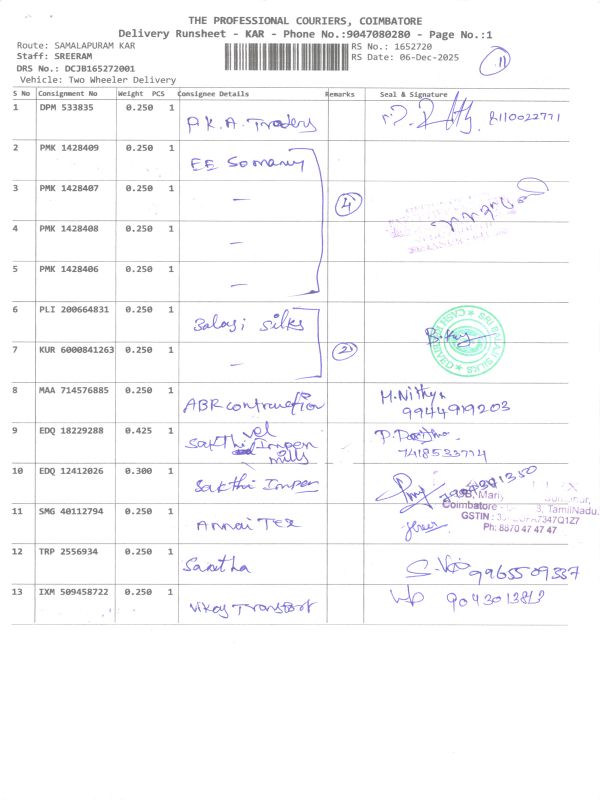 THE PROFESSIONAL COURIERS, COIMBATORE
Delivery Runsheet - KAR - Phone No.:9047080280 - Page No.:1
Route: SAMALAPURAM KAR
RS No.: 1652720
Staff: SREERAM
RS Date: 06-Dec-2025
11
DRS No.: DCJB165272001
Vehicle: Two Wheeler Delivery
S No Consignment No Weight PCS Consignee Details Remarks Seal & Signature
1 DPM 533835 0.250 1 P.K.A. Traders
2 PMK 1428409 0.250 1 EE Somanur
3 PMK 1428407 0.250 1 — 4
4 PMK 1428408 0.250 1 —
5 PMK 1428406 0.250 1 —
6 PLI 200664831 0.250 1 Balaji Silks
SRI BALAJI SILKS
7 KUR 6000841263 0.250 1 — 2
8 MAA 714576885 0.250 1 ABR contruction M.Nithya
9944919203
9 EDQ 18229288 0.425 1 Sakthi vel Impex mills
7418533714
10 EDQ 12412026 0.300 1 Sakthi Impex
Coimbatore
TamilNadu.
GSTIN :
Ph: 8870 47 47 47
11 SMG 40112794 0.250 1 Annai Tex
12 TRP 2556934 0.250 1 Sanetha 9965509337
13 IXM 509458722 0.250 1 Vikay Transport